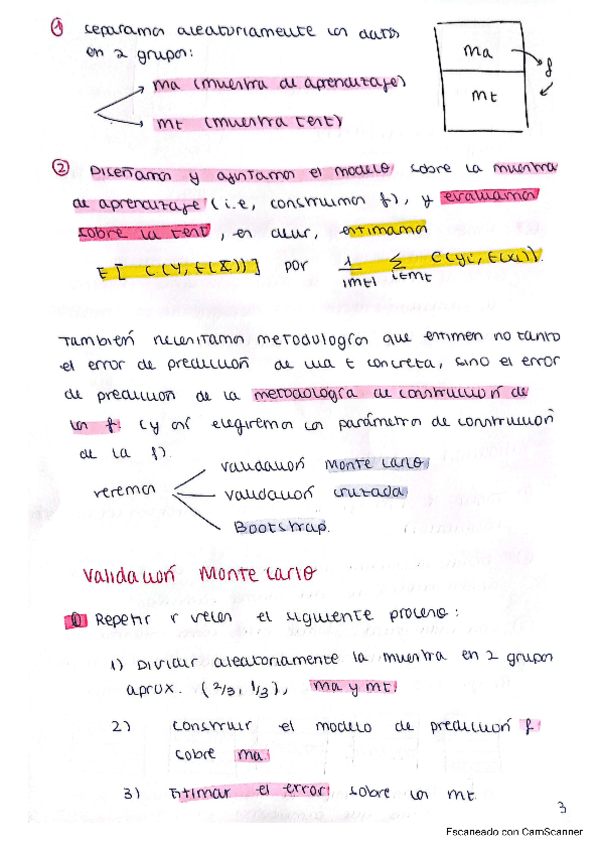 ① separamos aleatoriamente los datos
en 2 grupos:
ma (muestra de aprendizaje)
mt (muestra test)
ma
f
mt
② Diseñamos y ajustamos el modelo sobre la muestra
de aprendizaje (i.e, construimos f), y evaluamos
sobre la test, es decir, estimamos
E[ C(Y, f(X)) ] por 1/|mt| Σ i∈mt C(yi, f(xi)).
También necesitamos metodologías que estimen no tanto
el error de predicción de una f concreta, sino el error
de predicción de la metodología de construcción de
las f. (y así elegiremos los parámetros de construcción
de la f).
veremos
validación Monte Carlo
validación cruzada
Bootstrap.
Validación Monte Carlo
① Repetir r veces el siguiente proceso:
1) Dividir aleatoriamente la muestra en 2 grupos
aprox. (2/3, 1/3), ma y mt.
2) construir el modelo de predicción f
sobre ma
3) Estimar el error sobre los mt
3
Escaneado con CamScanner